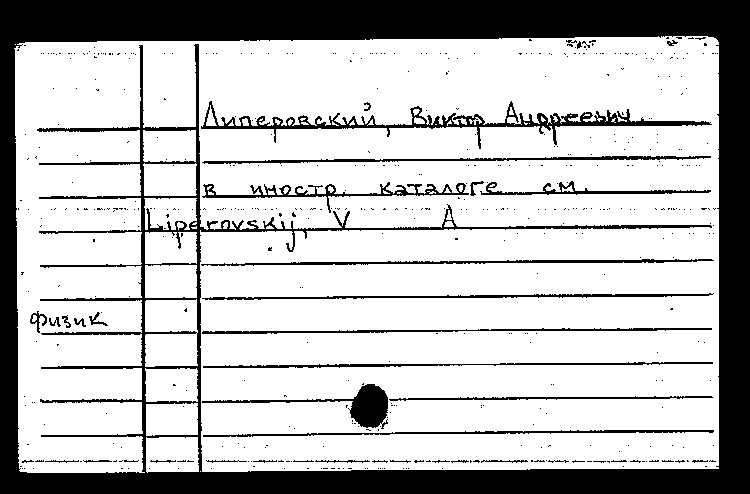 Липеровский, Виктор Андреевич.
в иностр. каталоге см.
Liperovskij, V A
Физик